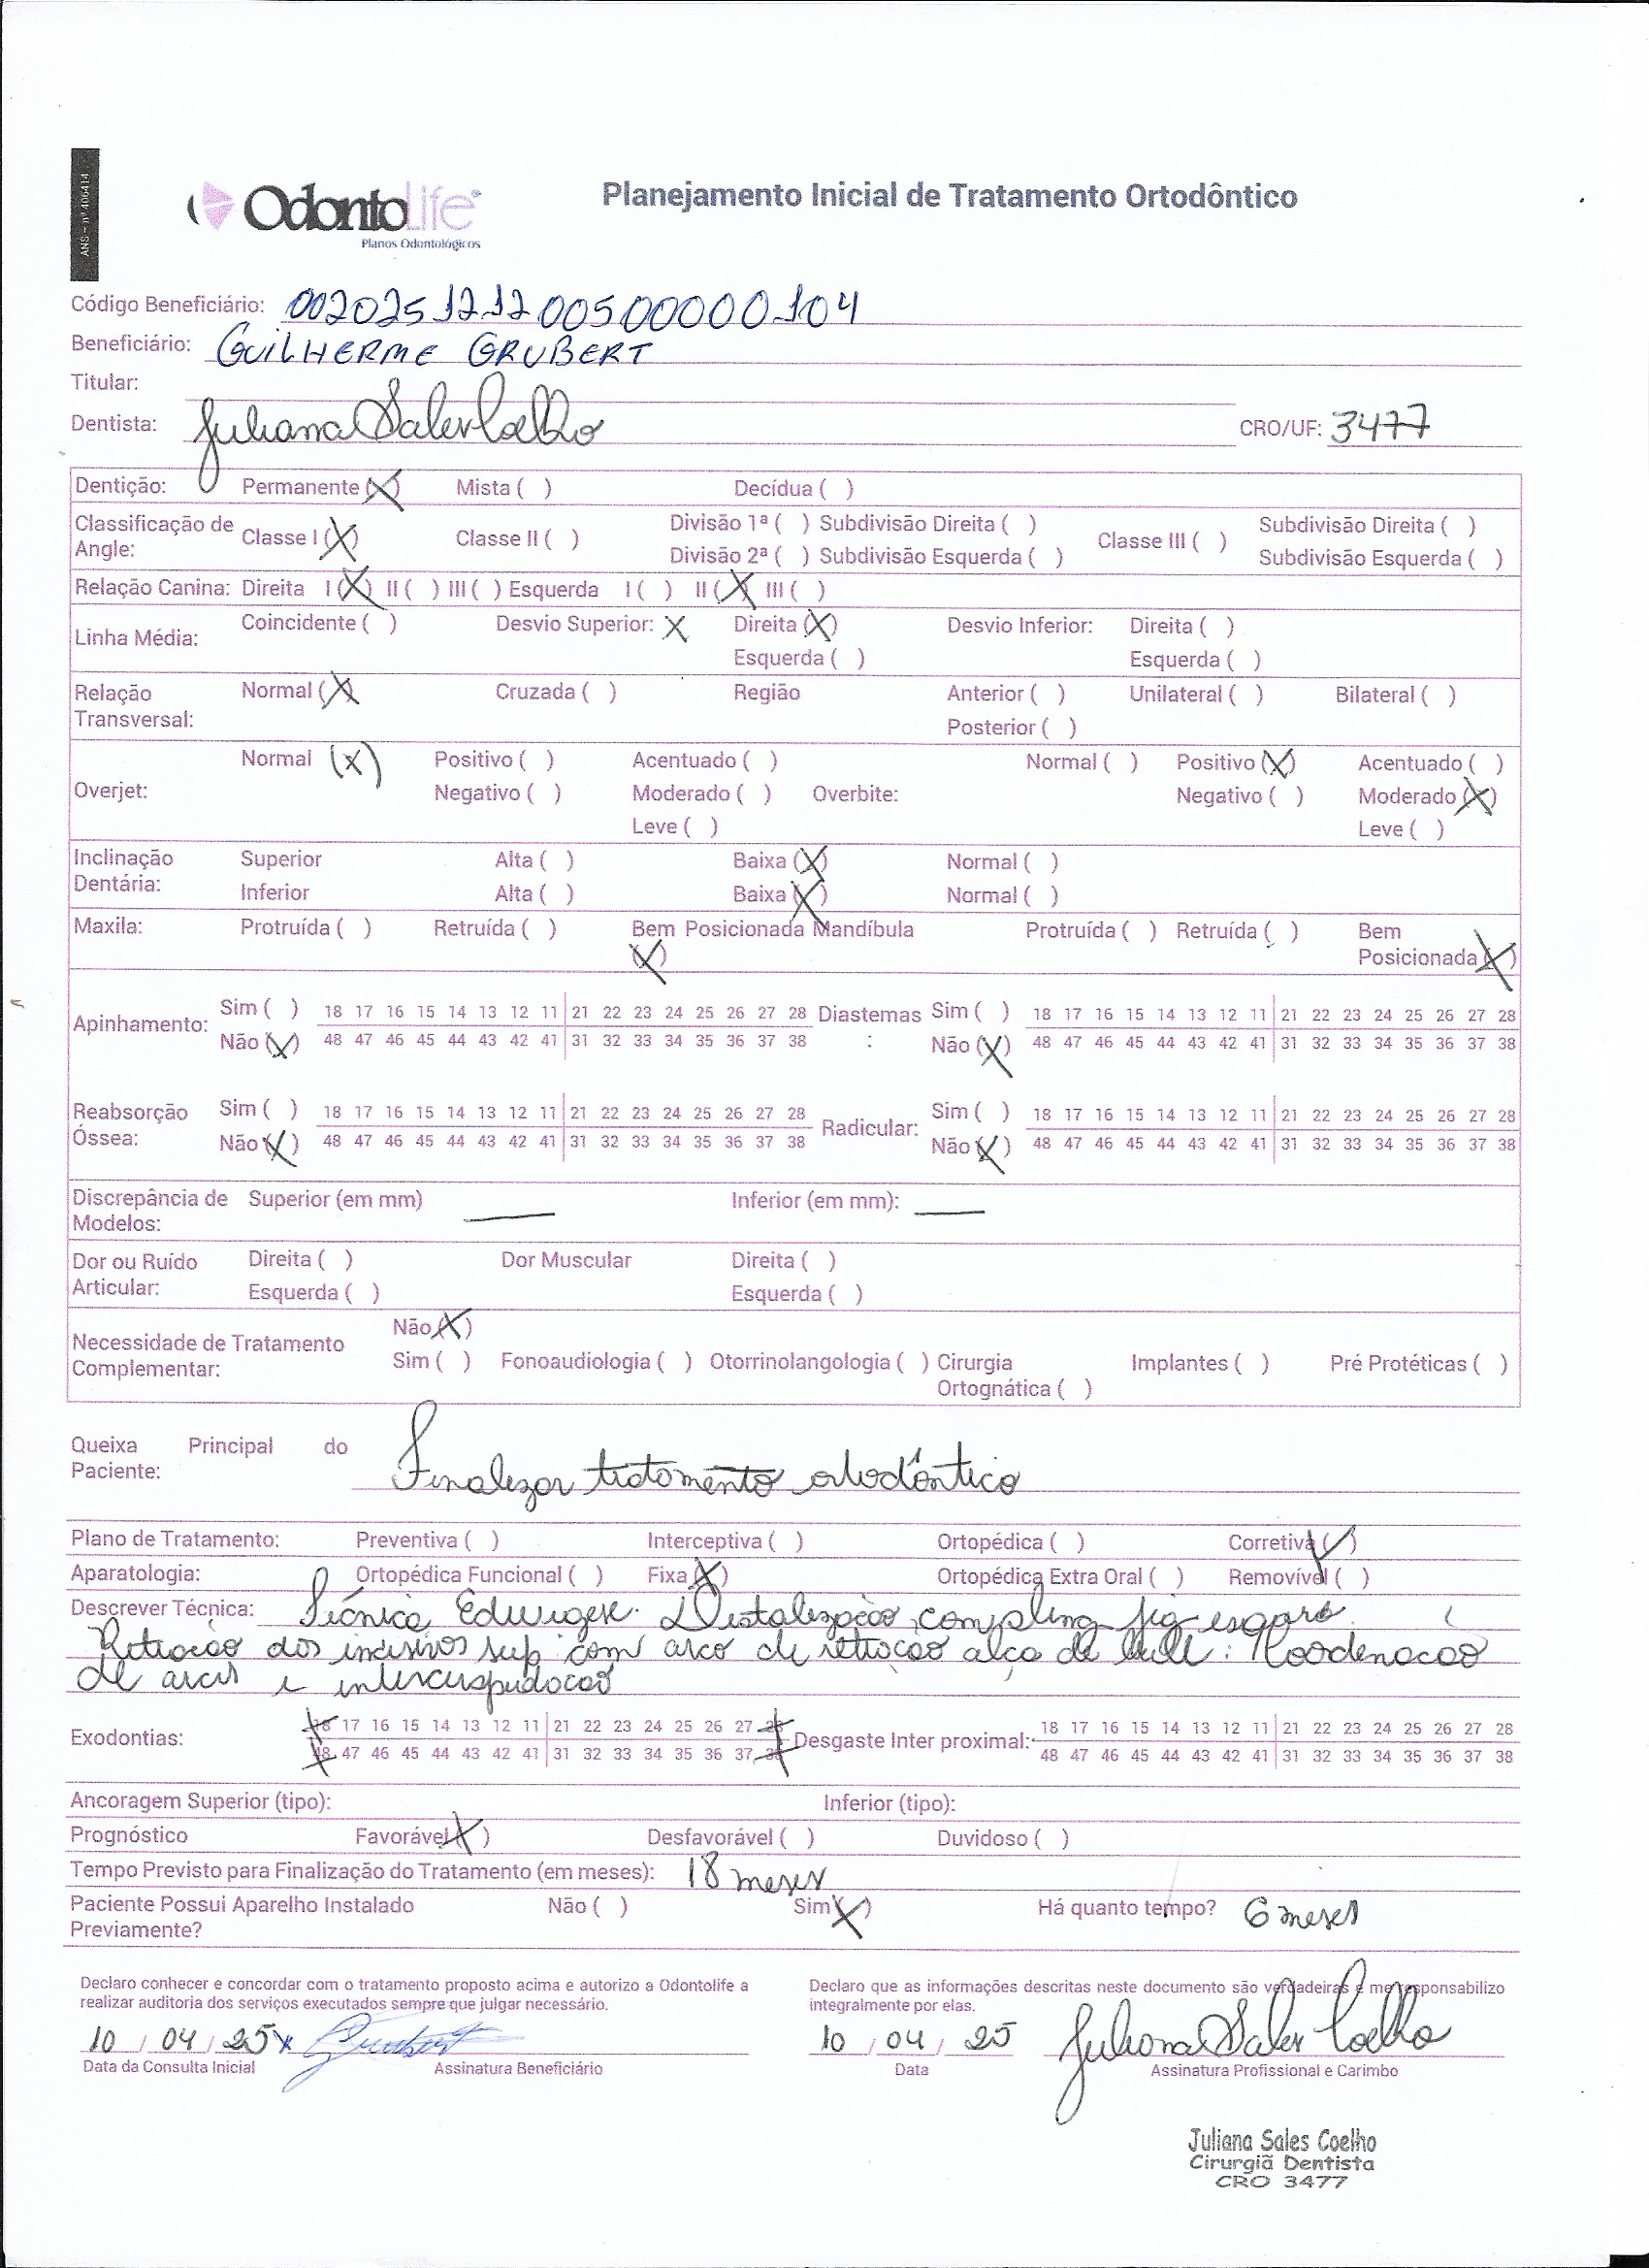 ANS - nº 406414
OdontoLife
Planos Odontológicos
Planejamento Inicial de Tratamento Ortodôntico
Código Beneficiário: 002025121200500000104
Beneficiário: GUILHERME GRUBERT
Titular:
Dentista: Juliana Sales Coelho CRO/UF: 3477
Dentição: Permanente (X) Mista ( ) Decídua ( )
Classificação de Angle: Classe I (X) Classe II ( ) Divisão 1ª ( ) Subdivisão Direita ( ) Classe III ( ) Subdivisão Direita ( )
Divisão 2ª ( ) Subdivisão Esquerda ( ) Subdivisão Esquerda ( )
Relação Canina: Direita I (X) II ( ) III ( ) Esquerda I ( ) II (X) III ( )
Linha Média: Coincidente ( ) Desvio Superior: X Direita (X) Desvio Inferior: Direita ( )
Esquerda ( ) Esquerda ( )
Relação Transversal: Normal (X) Cruzada ( ) Região Anterior ( ) Unilateral ( ) Bilateral ( )
Posterior ( )
Overjet: Normal (X) Positivo ( ) Acentuado ( ) Overbite: Normal ( ) Positivo (X) Acentuado ( )
Negativo ( ) Moderado ( ) Negativo ( ) Moderado (X)
Leve ( ) Leve ( )
Inclinação Dentária: Superior Alta ( ) Baixa (X) Normal ( )
Inferior Alta ( ) Baixa (X) Normal ( )
Maxila: Protruída ( ) Retruída ( ) Bem Posicionada (X) Mandíbula Protruída ( ) Retruída ( ) Bem Posicionada (X)
Apinhamento: Sim ( ) 18 17 16 15 14 13 12 11 21 22 23 24 25 26 27 28 Diastemas : Sim ( ) 18 17 16 15 14 13 12 11 21 22 23 24 25 26 27 28
Não (X) 48 47 46 45 44 43 42 41 31 32 33 34 35 36 37 38 Não (X) 48 47 46 45 44 43 42 41 31 32 33 34 35 36 37 38
Reabsorção Óssea: Sim ( ) 18 17 16 15 14 13 12 11 21 22 23 24 25 26 27 28 Radicular: Sim ( ) 18 17 16 15 14 13 12 11 21 22 23 24 25 26 27 28
Não (X) 48 47 46 45 44 43 42 41 31 32 33 34 35 36 37 38 Não (X) 48 47 46 45 44 43 42 41 31 32 33 34 35 36 37 38
Discrepância de Modelos: Superior (em mm) — Inferior (em mm): —
Dor ou Ruído Articular: Direita ( ) Dor Muscular Direita ( )
Esquerda ( ) Esquerda ( )
Necessidade de Tratamento Complementar: Não (X)
Sim ( ) Fonoaudiologia ( ) Otorrinolangologia ( ) Cirurgia Ortognática ( ) Implantes ( ) Pré Protéticas ( )
Queixa Principal do Paciente: Finalizar tratamento ortodôntico
Plano de Tratamento: Preventiva ( ) Interceptiva ( ) Ortopédica ( ) Corretiva (X)
Aparatologia: Ortopédica Funcional ( ) Fixa (X) Ortopédica Extra Oral ( ) Removível ( )
Descrever Técnica: Técnica Edwigse. Distalização com sling jig
Retração dos incisivos sup com arco de retração alça de bull. Coordenação
de arcos e intercuspidação
Exodontias: 18 17 16 15 14 13 12 11 21 22 23 24 25 26 27 28 Desgaste Inter proximal: 18 17 16 15 14 13 12 11 21 22 23 24 25 26 27 28
48 47 46 45 44 43 42 41 31 32 33 34 35 36 37 38 48 47 46 45 44 43 42 41 31 32 33 34 35 36 37 38
Ancoragem Superior (tipo): Inferior (tipo):
Prognóstico Favorável (X) Desfavorável ( ) Duvidoso ( )
Tempo Previsto para Finalização do Tratamento (em meses): 18 meses
Paciente Possui Aparelho Instalado Previamente? Não ( ) Sim (X) Há quanto tempo? 6 meses
Declaro conhecer e concordar com o tratamento proposto acima e autorizo a Odontolife a
realizar auditoria dos serviços executados sempre que julgar necessário.
10 / 04 / 25 x Grubert
Data da Consulta Inicial Assinatura Beneficiário
Declaro que as informações descritas neste documento são verdadeiras e me responsabilizo
integralmente por elas.
10 / 04 / 25 Juliana Sales Coelho
Data Assinatura Profissional e Carimbo
Juliana Sales Coelho
Cirurgiã Dentista
CRO 3477